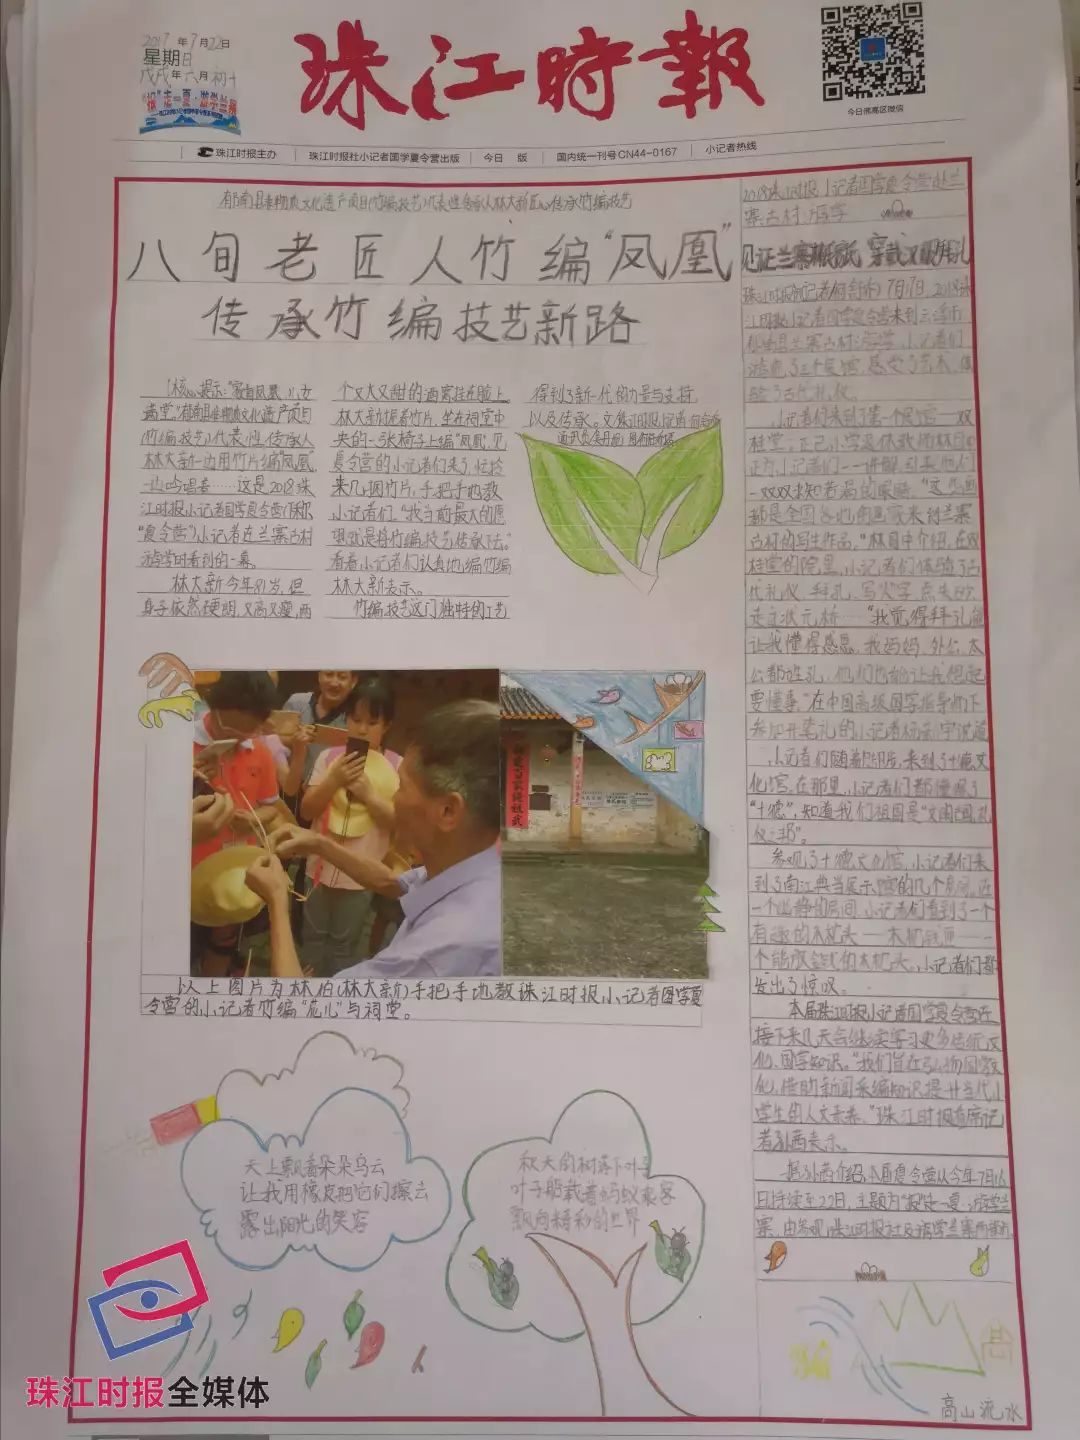 2017年7月22日
星期日
戊戌年六月初十
珠江時報
今日佛高区微信
珠江时报主办
珠江时报社小记者国学夏令营出版
今日 版
国内统一刊号CN44-0167
小记者热线
郁南县非物质文化遗产项目(竹编技艺)代表性传承人林大新匠心传承竹编技艺
八旬老匠人竹编“凤凰”
传承竹编技艺新路
满堂。”郁南县非物质文化遗产项目
(竹编技艺)代表性传承人
林大新一边用竹片编“凤凰”,
一边吟唱着……这是2018珠
江时报小记者国学夏令营(下称
“夏令营”)小记者在兰寨古村
游学时看到的一幕。
林大新今年81岁,但
身子依然硬朗,又高又瘦,两
个又大又甜的酒窝挂在脸上。
林大新握着竹片,坐在祠堂中
央的一张椅子上编“凤凰”,见
夏令营的小记者们来了,忙拾
来几捆竹片,手把手地教
小记者们。“我当前最大的愿
望就是将竹编技艺传承下去。”
看着小记者们认真地编竹编
林大新表示。
竹编技艺这门独特的工艺
得到了新一代的力量与支持,
以及传承。
以上图片为林伯(林大新)手把手地教珠江时报小记者国学夏
令营的小记者竹编“花儿”与祠堂。
天上飘着朵朵乌云
让我用橡皮把它们擦去
露出阳光的笑容
秋天的树落下叶子
叶子船载着蚂蚁乘客
飘向精彩的世界
2018珠江时报小记者国学夏令营赴兰
寨古村游学
小记者们来到了第一个展馆——双
桂堂。正心小学退休教师林目中
正为小记者们一一讲解,引来他们
一双双求知若渴的眼睛。“这些画
都是全国各地的画家来到兰寨
古村的写生作品。”林目中介绍,在双
桂堂的院里,小记者们体验了古
代礼仪、拜孔、写“人”字、点朱砂、
走过状元桥……“我觉得拜孔能
让我懂得感恩。我妈妈、外公、太
公都姓孔,他们也能让我想起
要懂事。”在中国高级国学指导师下
小记者们随着队伍,来到了十德文
化馆。在那里,小记者们都懂得了
“十德”,知道我们祖国是“文明古国,礼
仪之邦”。
参观了十德文化馆,小记者们来
到了南江典当展示馆的几个房间。在
一个幽静的房间,小记者们看到了一个
有趣的木枕头——木枕钱匣——一
个能放金钱的木枕头。小记者们都
发出了惊叹。
本届珠江时报小记者国学夏令营在
接下来几天会继续学习更多传统文
化、国学知识。“我们旨在弘扬国学文
化,借助新闻采编知识提升当代小
学生的人文素养。”珠江时报首席记
者孙茜表示。
据孙茜介绍,本届夏令营从今年7月16
日持续至22日,主题为“报”走一夏·游学兰
寨,由参观珠江时报社及游学兰寨两部分
高山流水
珠江时报全媒体